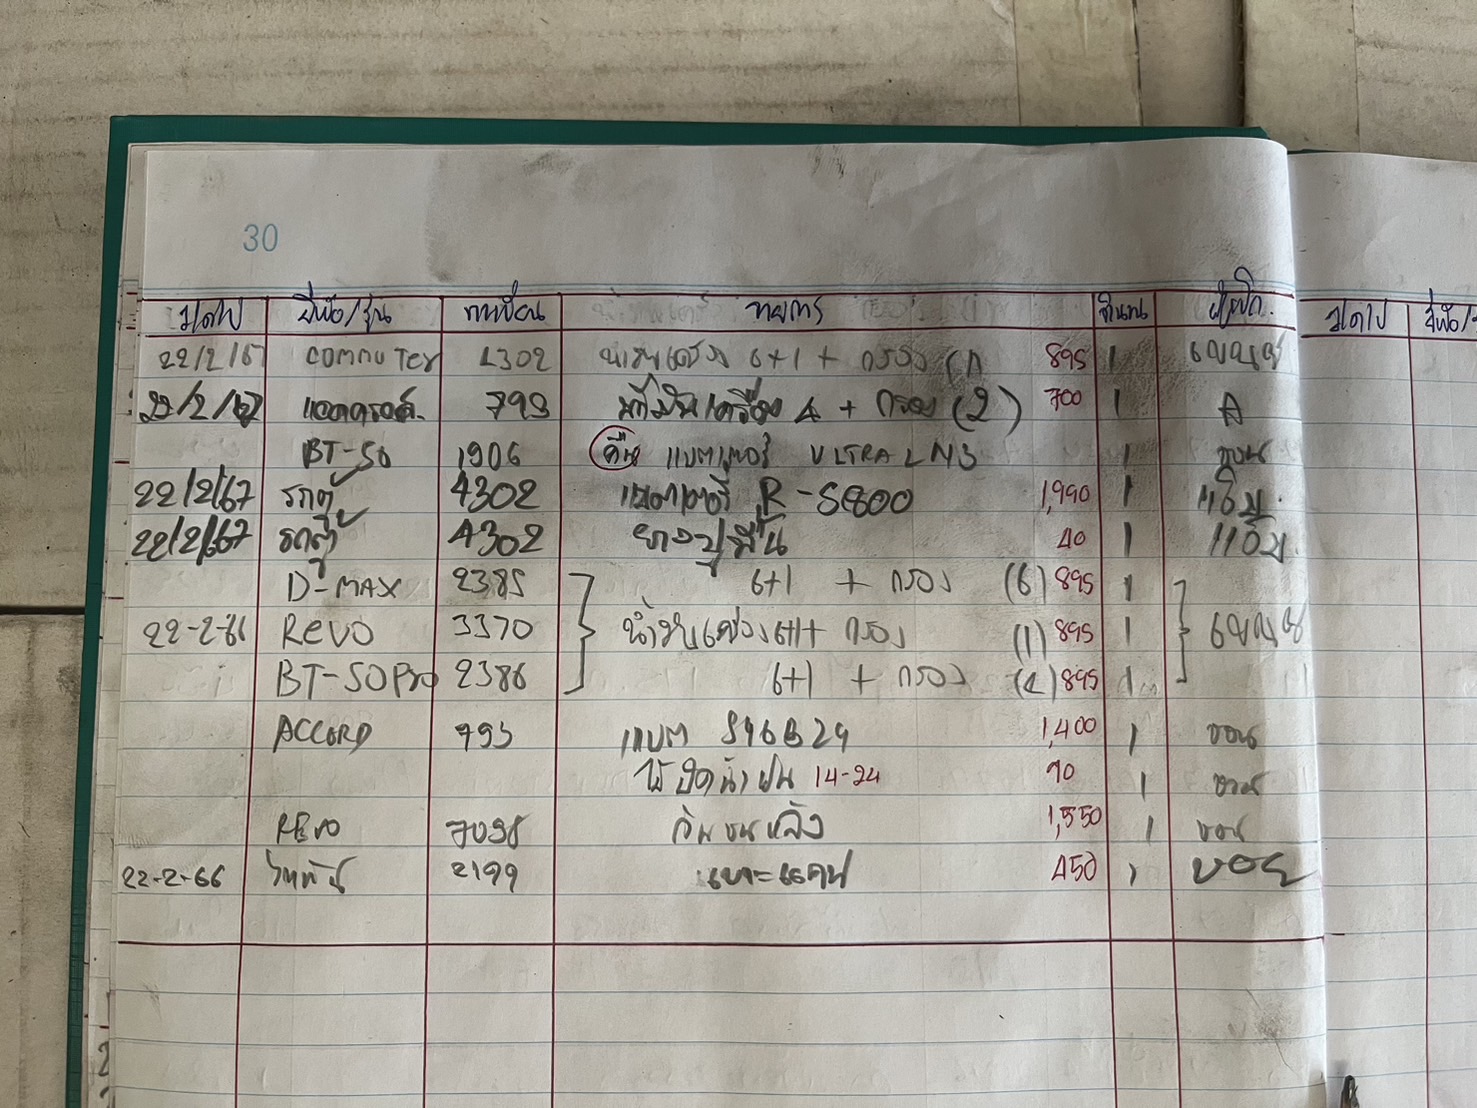 30
ว/ด/ป ยี่ห้อ/รุ่น ทะเบียน รายการ จำนวน ผู้เบิก ว/ด/ป ยี่ห้อ/
22/2/67 COMMUTER 1302 น้ำมันเครื่อง 6+1 + กรอง 895 1
22/2/67 แอคคอร์ด 793 น้ำมันเครื่อง 4 + กรอง (2) 700 1 A
BT-50 1906 คืน แบตเตอรี่ ULTRA LN3 1 ขอน
22/2/67 รถตู้ 4302 แบตเตอรี่ R-S800 1,990 1
22/2/67 รถตู้ 4302 40 1
D-MAX 2385 6+1 + กรอง (6) 895 1
22-2-66 REVO 3370 น้ำมันเครื่อง 6+1 + กรอง (1) 895 1
BT-50 PRO 2386 6+1 + กรอง 895 1
ACCORD 793 แบต S46B24 1,400 1
ใบปัดน้ำฝน 14-24 90 1
REVO 7098 กันชนหลัง 1,550 1
22-2-66 2199 450